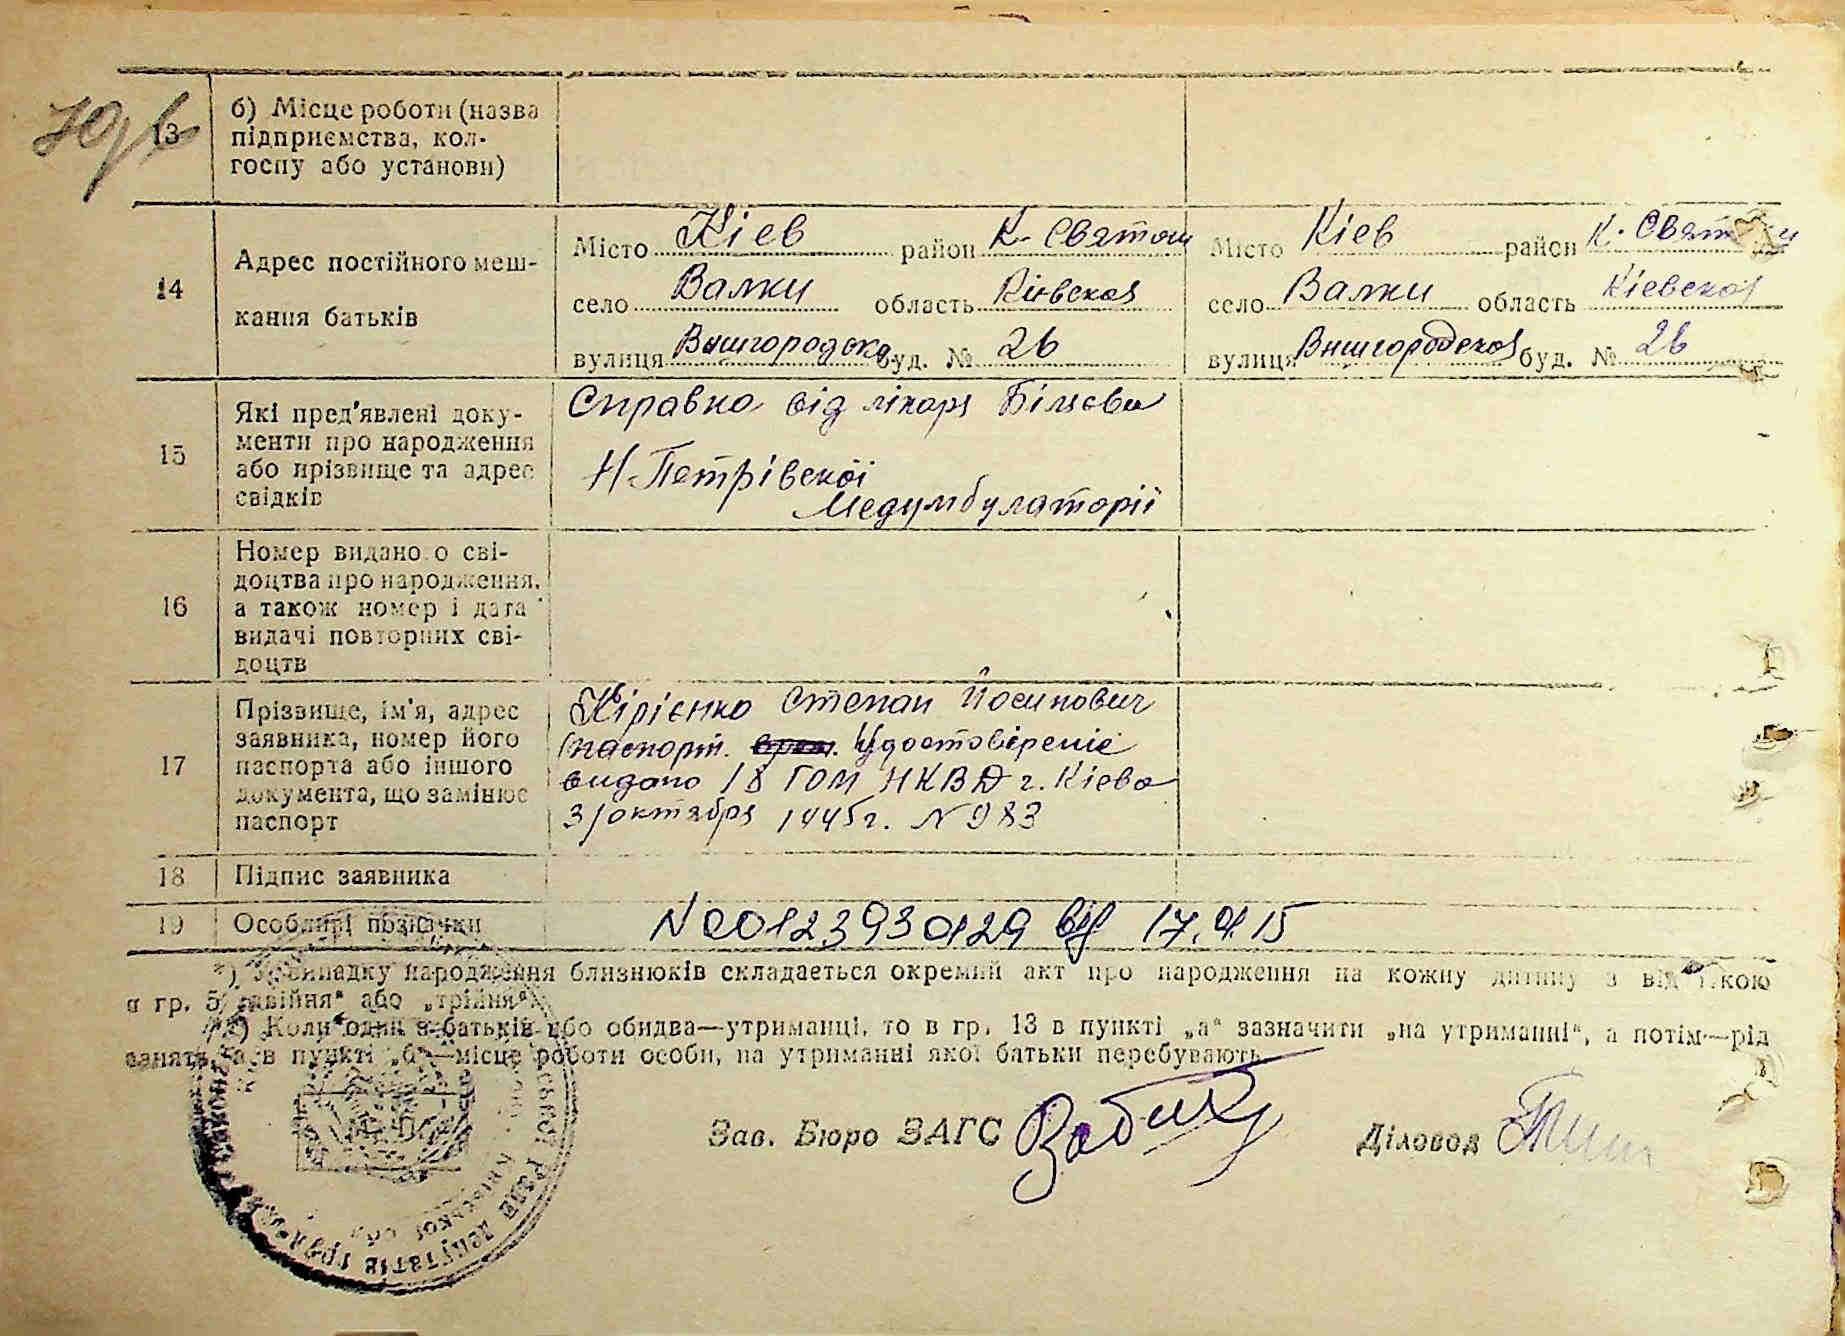 13
б) Місце роботи (назва
підприємства, кол-
госпу або установи)
14
Адрес постійного меш-
кання батьків
Місто Кіев район К-Святош
село Валки область Кіевская
вулиця Вишгородска буд. № 26
Місто Кіев район К-Свят
село Валки область Кіевская
вулиця Вишгородская буд. № 26
15
Які пред'явлені доку-
менти про народження
або прізвище та адрес
свідків
Справка від лікаря
Н-Петрівскоі
Медумбулаторіі
16
Номер видано о сві-
доцтва про народження,
а також номер і дата
видачі повторних сві-
доцтв
17
Прізвище, ім'я, адрес
заявника, номер його
паспорта або іншого
документа, що замінює
паспорт
Кірієнко Степан Йосипович
паспорт. Удостовіреніє
видано 18 ГОМ НКВД г. Кіева
3/октября 1945г. N 983
18
Підпис заявника
19
Особливі позначки
N 00123930129 від 17.01.15
*) У випадку народження близнюків складається окремий акт про народження на кожну дитину з відміткою
в гр. 5 „двійня“ або „трійня“.
*) Коли один з батьків або обидва—утриманці, то в гр. 13 в пункті „а“ зазначити „на утриманні“, а потім—рід
занять, а в пункті „б“—місце роботи особи, на утриманні якої батьки перебувають
Зав. Бюро ЗАГС
Діловод